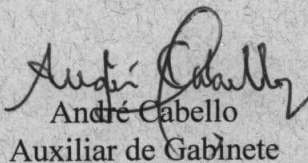 André Cabello
André Cabello
Auxiliar de Gabinete